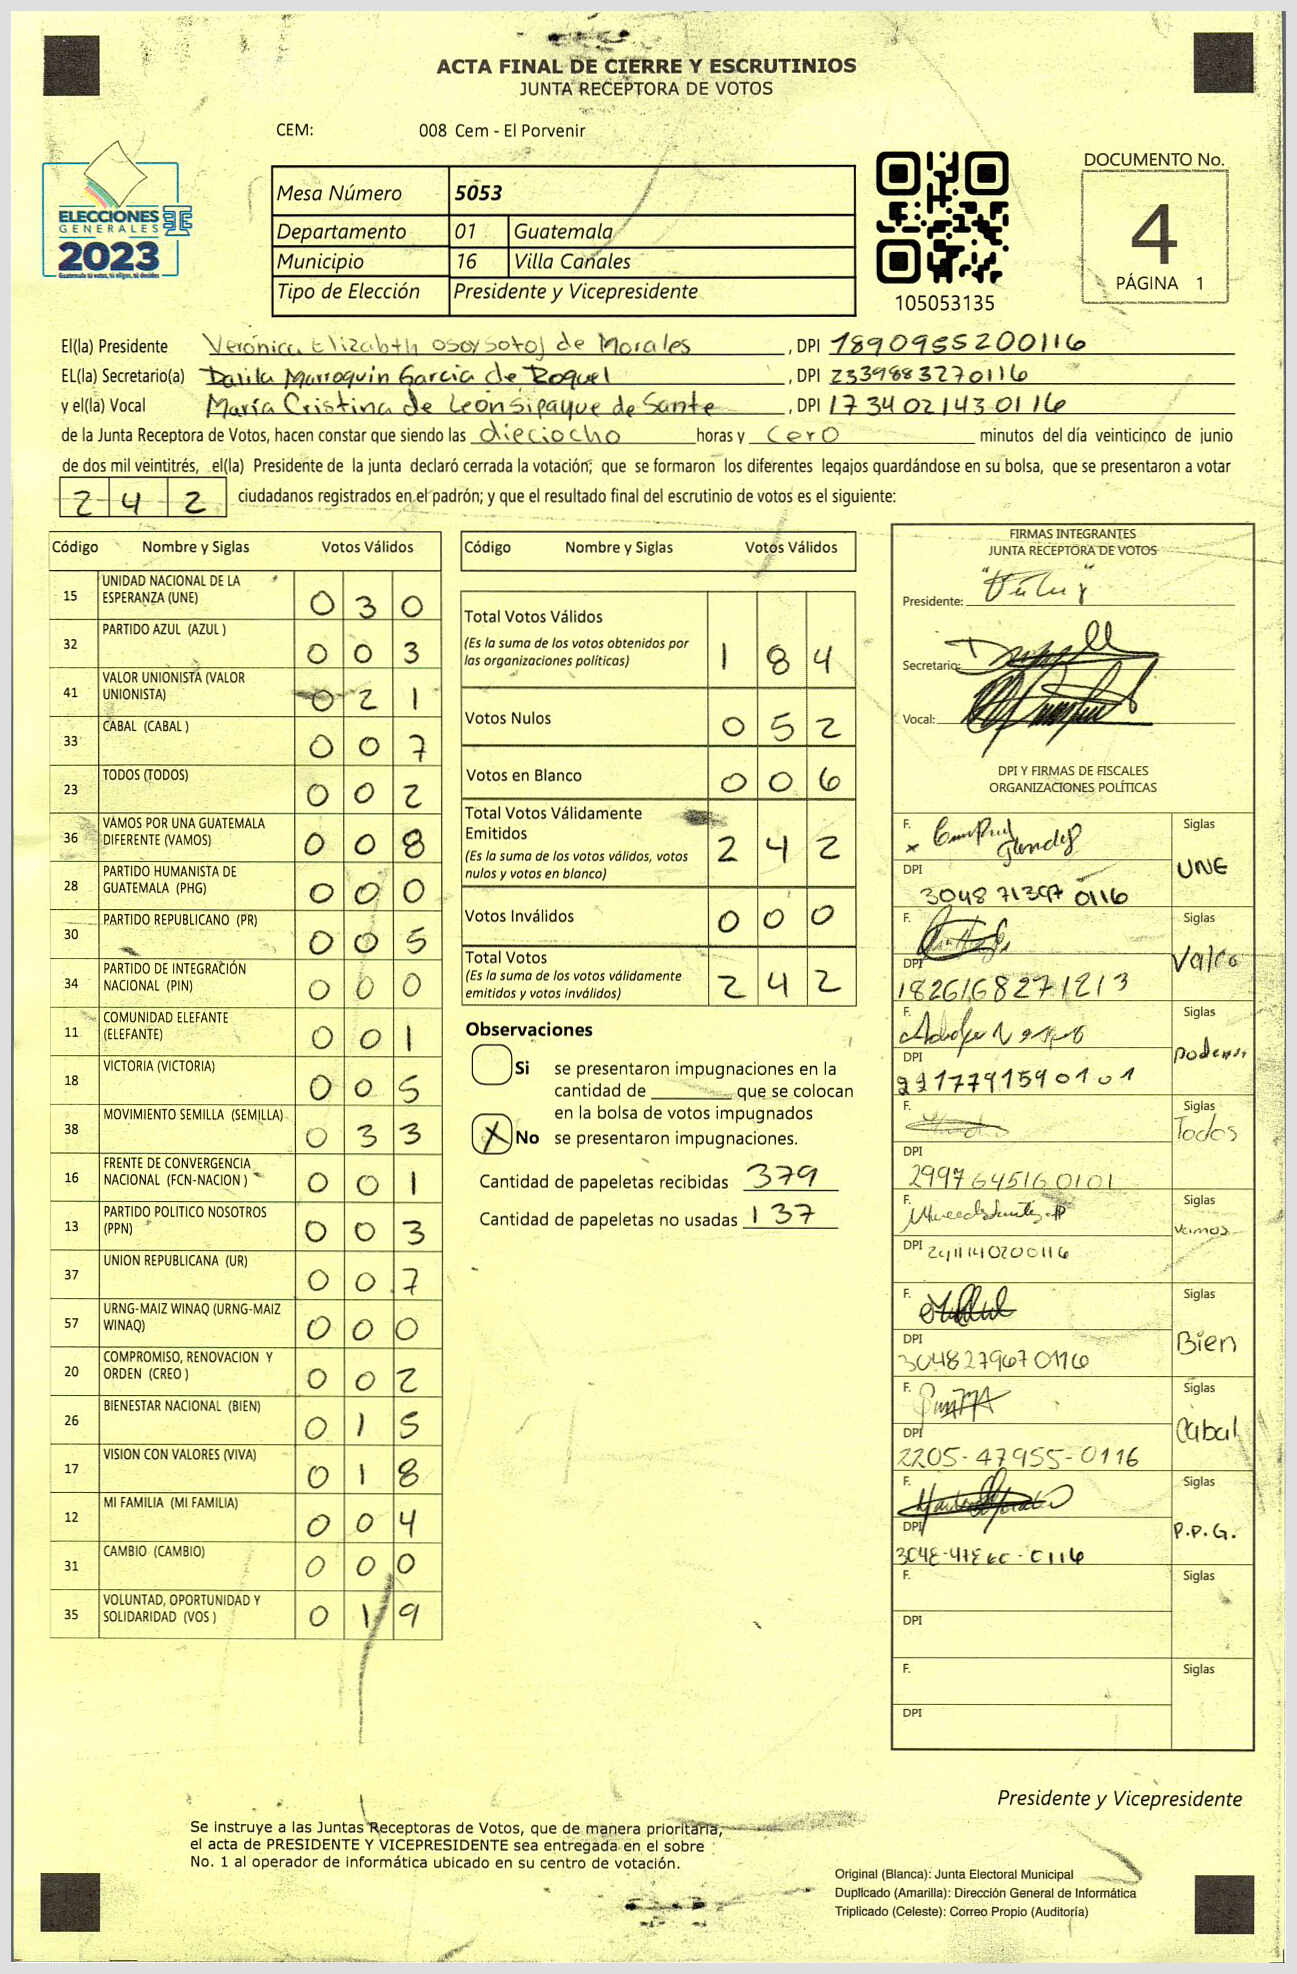 ACTA FINAL DE CIERRE Y ESCRUTINIOS
JUNTA RECEPTORA DE VOTOS
CEM: 008 Cem - El Porvenir
ELECCIONES
GENERALES
2023
Guatemala tú votas, tú eliges, tú decides
Mesa Número 5053
Departamento 01 Guatemala
Municipio 16 Villa Canales
Tipo de Elección Presidente y Vicepresidente
105053135
DOCUMENTO No.
4
PÁGINA 1
El(la) Presidente Verónica Elizabth de Morales, DPI 1890955200116
EL(la) Secretario(a) Dalila Marroquin Garcia de Roquel, DPI 2339883270116
y el(la) Vocal María Cristina de León Sipaque de Sante, DPI 1734021430116
de la Junta Receptora de Votos, hacen constar que siendo las dieciocho horas y cero minutos del día veinticinco de junio
de dos mil veintitrés, el(la) Presidente de la junta declaró cerrada la votación; que se formaron los diferentes legajos guardándose en su bolsa, que se presentaron a votar
242 ciudadanos registrados en el padrón; y que el resultado final del escrutinio de votos es el siguiente:
Código Nombre y Siglas Votos Válidos
15 UNIDAD NACIONAL DE LA ESPERANZA (UNE) 030
32 PARTIDO AZUL (AZUL ) 003
41 VALOR UNIONISTA (VALOR UNIONISTA) 021
33 CABAL (CABAL ) 007
23 TODOS (TODOS) 002
36 VAMOS POR UNA GUATEMALA DIFERENTE (VAMOS) 008
28 PARTIDO HUMANISTA DE GUATEMALA (PHG) 000
30 PARTIDO REPUBLICANO (PR) 005
34 PARTIDO DE INTEGRACIÓN NACIONAL (PIN) 000
11 COMUNIDAD ELEFANTE (ELEFANTE) 001
18 VICTORIA (VICTORIA) 005
38 MOVIMIENTO SEMILLA (SEMILLA) 033
16 FRENTE DE CONVERGENCIA NACIONAL (FCN-NACION ) 001
13 PARTIDO POLÍTICO NOSOTROS (PPN) 003
37 UNION REPUBLICANA (UR) 007
57 URNG-MAIZ WINAQ (URNG-MAIZ WINAQ) 000
20 COMPROMISO, RENOVACION Y ORDEN (CREO ) 002
26 BIENESTAR NACIONAL (BIEN) 015
17 VISION CON VALORES (VIVA) 018
12 MI FAMILIA (MI FAMILIA) 004
31 CAMBIO (CAMBIO) 000
35 VOLUNTAD, OPORTUNIDAD Y SOLIDARIDAD (VOS ) 019
Código Nombre y Siglas Votos Válidos
Total Votos Válidos 184
(Es la suma de los votos obtenidos por
las organizaciones políticas)
Votos Nulos 052
Votos en Blanco 006
Total Votos Válidamente
Emitidos 242
(Es la suma de los votos válidos, votos
nulos y votos en blanco)
Votos Inválidos 000
Total Votos 242
(Es la suma de los votos válidamente
emitidos y votos inválidos)
Observaciones
Si se presentaron impugnaciones en la
cantidad de que se colocan
en la bolsa de votos impugnados
X No se presentaron impugnaciones.
Cantidad de papeletas recibidas 379
Cantidad de papeletas no usadas 137
FIRMAS INTEGRANTES
JUNTA RECEPTORA DE VOTOS
Presidente:
Secretario:
Vocal:
DPI Y FIRMAS DE FISCALES
ORGANIZACIONES POLÍTICAS
F. Siglas
UNE
DPI
3048 71397 0116
F. Siglas
Valor
DPI
1826168271213
F. Siglas
Podemos
DPI
2217791590101
F. Siglas
Todos
DPI
2997645160101
F. Siglas
Vamos
DPI 2411140200116
F. Siglas
Bien
DPI
3048279670116
F. Siglas
Cabal
DPI
2205-47955-0116
F. Siglas
P.P.G.
DPI
F. Siglas
DPI
F. Siglas
DPI
Presidente y Vicepresidente
Se instruye a las Juntas Receptoras de Votos, que de manera prioritaria,
el acta de PRESIDENTE Y VICEPRESIDENTE sea entregada en el sobre
No. 1 al operador de informática ubicado en su centro de votación.
Original (Blanca): Junta Electoral Municipal
Duplicado (Amarilla): Dirección General de Informática
Triplicado (Celeste): Correo Propio (Auditoría)